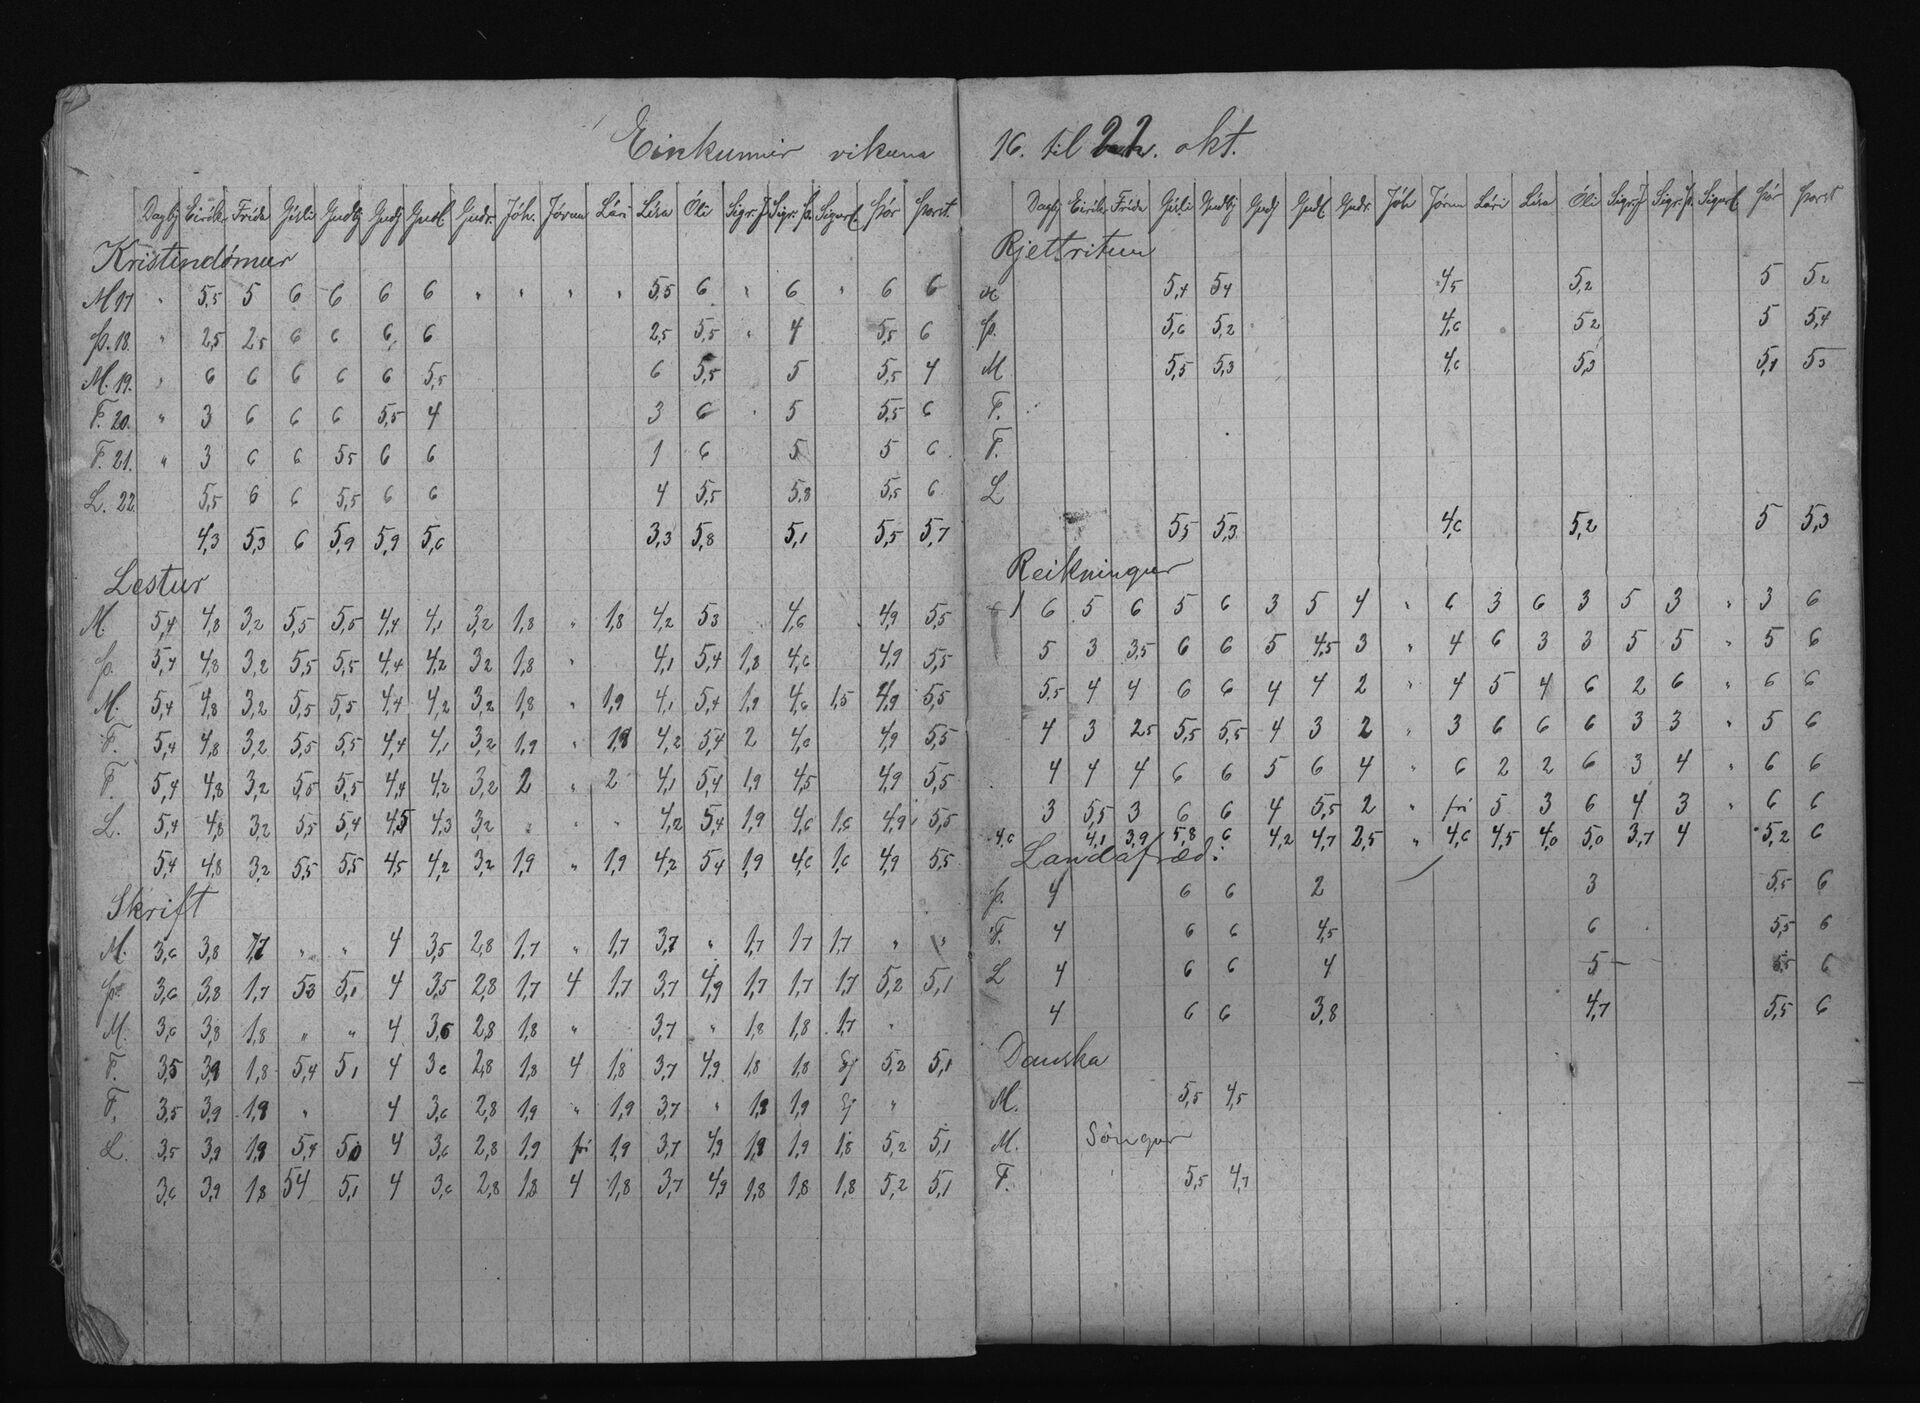 Einkunnir vikuna
Dagbj Eirík. Fríða Gísli Gudbj Gudj Gudl. Gudr. Jóh. Jórun Lári Lára Óli Sigr. J Sigr. Þ. Sigurl. Þór Þorst.
Kristindómur
M 17 " 5,5 5 6 6 6 6 " " " " 5,5 6 " 6 " 6 6
Þ. 18. " 2,5 2,5 6 6 6 6 2,5 5,5 " 4 5,5 6
M. 19. " 6 6 6 6 6 5,5 6 5,5 5 5,5 4
F. 20. " 3 6 6 6 5,5 4 3 6 5 5,5 6
F. 21. " 3 6 6 5,5 6 6 1 6 5 5 6
L. 22. 5,5 6 6 5,5 6 6 4 5,5 5,8 5,5 6
4,3 5,3 6 5,9 5,9 5,6 3,3 5,8 5,1 5,5 5,7
Lestur
M. 5,4 4,8 3,2 5,5 5,5 4,4 4,1 3,2 1,8 " 1,8 4,2 5,3 4,6 4,9 5,5
Þ. 5,4 4,8 3,2 5,5 5,5 4,4 4,2 3,2 1,8 " 4,1 5,4 1,8 4,6 4,9 5,5
M. 5,4 4,8 3,2 5,5 5,5 4,4 4,2 3,2 1,8 " 1,9 4,1 5,4 1,9 4,6 1,5 4,9 5,5
F. 5,4 4,8 3,2 5,5 5,5 4,4 4,1 3,2 1,9 " 1,8 4,2 5,4 2 4,6 4,9 5,5
F. 5,4 4,8 3,2 5,5 5,5 4,4 4,2 3,2 2 " 2 4,1 5,4 1,9 4,5 4,9 5,5
L. 5,4 4,8 3,2 5,5 5,4 4,5 4,3 3,2 " " " 4,2 5,4 1,9 4,6 1,6 4,9 5,5
5,4 4,8 3,2 5,5 5,5 4,5 4,2 3,2 1,9 " 1,9 4,2 5,4 1,9 4,6 1,6 4,9 5,5
Skrift
M. 3,6 3,8 1,7 " " 4 3,5 2,8 1,7 " 1,7 3,7 " 1,7 1,7 1,7 " "
Þ. 3,6 3,8 1,7 5,3 5,1 4 3,5 2,8 1,7 4 1,7 3,7 4,9 1,7 1,7 1,7 5,2 5,1
M. 3,6 3,8 1,8 " " 4 3,6 2,8 1,8 " 3,7 " 1,8 1,8 1,7 "
F. 3,5 3,9 1,8 5,4 5,1 4 3,6 2,8 1,8 4 1,8 3,7 4,9 1,8 1,8 Ej 5,2 5,1
F. 3,5 3,9 1,8 " 4 3,6 2,8 1,9 " 1,9 3,7 " 1,8 1,9 Ej "
L. 3,5 3,9 1,8 5,4 5,0 4 3,6 2,8 1,9 frí 1,9 3,7 4,9 1,8 1,9 1,8 5,2 5,1
3,6 3,9 1,8 5,4 5,1 4 3,6 2,8 1,8 4 1,8 3,7 4,9 1,8 1,8 1,8 5,2 5,1
16. til 22. okt.
Dagbj Eirík Fríða Gísli Gudbj Gudj Gudl Gudr. Jóh Jórun Lári Lára Óli Sigr. J Sigr. Þ. Sigurl Þór Þorst
Rjettritun
5,4 5,4 4,5 5,2 5 5,2
Þ. 5,6 5,2 4,6 5,2 5 5,4
M 5,5 5,3 4,6 5,3 5,1 5,3
F.
F.
L
5,5 5,3 4,6 5,2 5 5,3
Reikningur
6 5 6 5 6 3 5 4 " 6 3 6 3 5 3 " 3 6
5 3 3,5 6 6 5 4,5 3 " 4 6 3 3 5 5 " 5 6
5,5 4 4 6 6 4 4 2 " 4 5 4 6 2 6 " 6 6
4 3 2,5 5,5 5,5 4 3 2 " 3 6 6 6 3 3 " 5 6
4 4 4 6 6 5 6 4 " 6 2 2 6 3 4 " 6 6
3 5,5 3 6 6 4 5,5 2 " frí 5 3 6 4 3 " 6 6
4,6 4,1 3,9 5,8 6 4,2 4,7 2,5 " 4,6 4,5 4,0 5,0 3,7 4 5,2 6
Landafræd:
Þ. 4 6 6 2 3 5,5 6
F. 4 6 6 4,5 6 5,5 6
L 4 6 6 4 5 5,5 6
4 6 6 3,8 4,7 5,5 6
Danska
M. 5,5 4,5
M. Söngur
F. 5,5 4,7